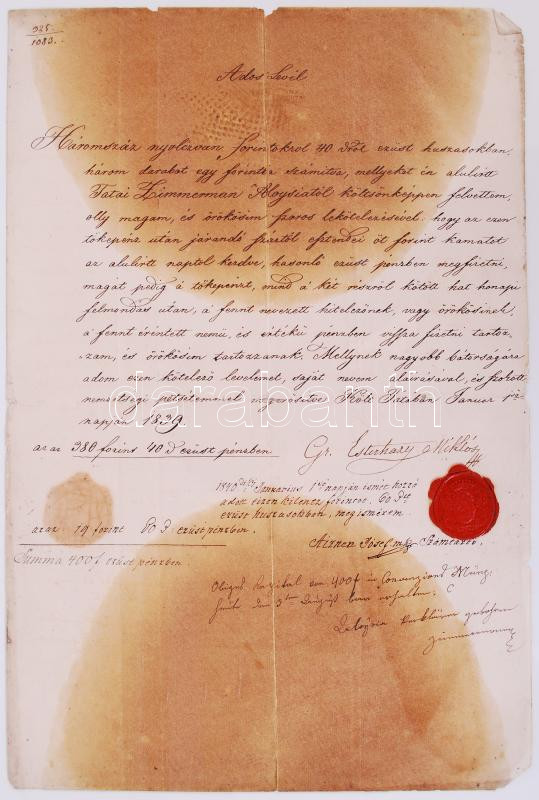 325
1083.
Ados Levél
Háromszáz nyolczvan forintokrol 40 drol ezüst huszasokban,
három darabot egy forintra számitva, mellyeket én alulirtt
Tatai Zimmerman Aloysiatól költsönképpen felvettem,
olly magam, és örökösim szoros lekötelezésivel: hogy az ezen
tökepénz után járandó Száztól esztendei öt forint kamatot
az alulirtt naptol kezdve, hasonló ezüst pénzben megfizetni,
magát pedig á tökepénzt, mind a két részröl kötött hat honapi
felmondás után, a fennt nevezett hitelezönek, vagy örökösinek,
á fennt érintett nemü, és értékü pénzben vissza fizetni tartoz-
zam, és örökösim tartozzanak. Mellynek nagyobb bátorságára
adom ezen kötelezö levelemet, saját nevem aláirásával, és szokott
nemzetségi pétsétemmel megerösitve. Költ Tatában Januar 1sö
napján 1839.
az az 380 forint 40 d ezüst pénzben
Gr. Eszterházy Miklós
1840 Januarius 1sö napján ismét hozzá
adott tizenkilencz forintot, 60 drt
ezüst huszasokban, megismérem
azaz. 19 forint 60 d ezüst pénzben.
Aizner Josef mk Számtartó.
Summa 400 f ezüst pénzben
Obiges Kapital von 400 f in Convenzions Münz
den 3ten August erhalten.
Aloysia geborne
Zimmermann
darabanth